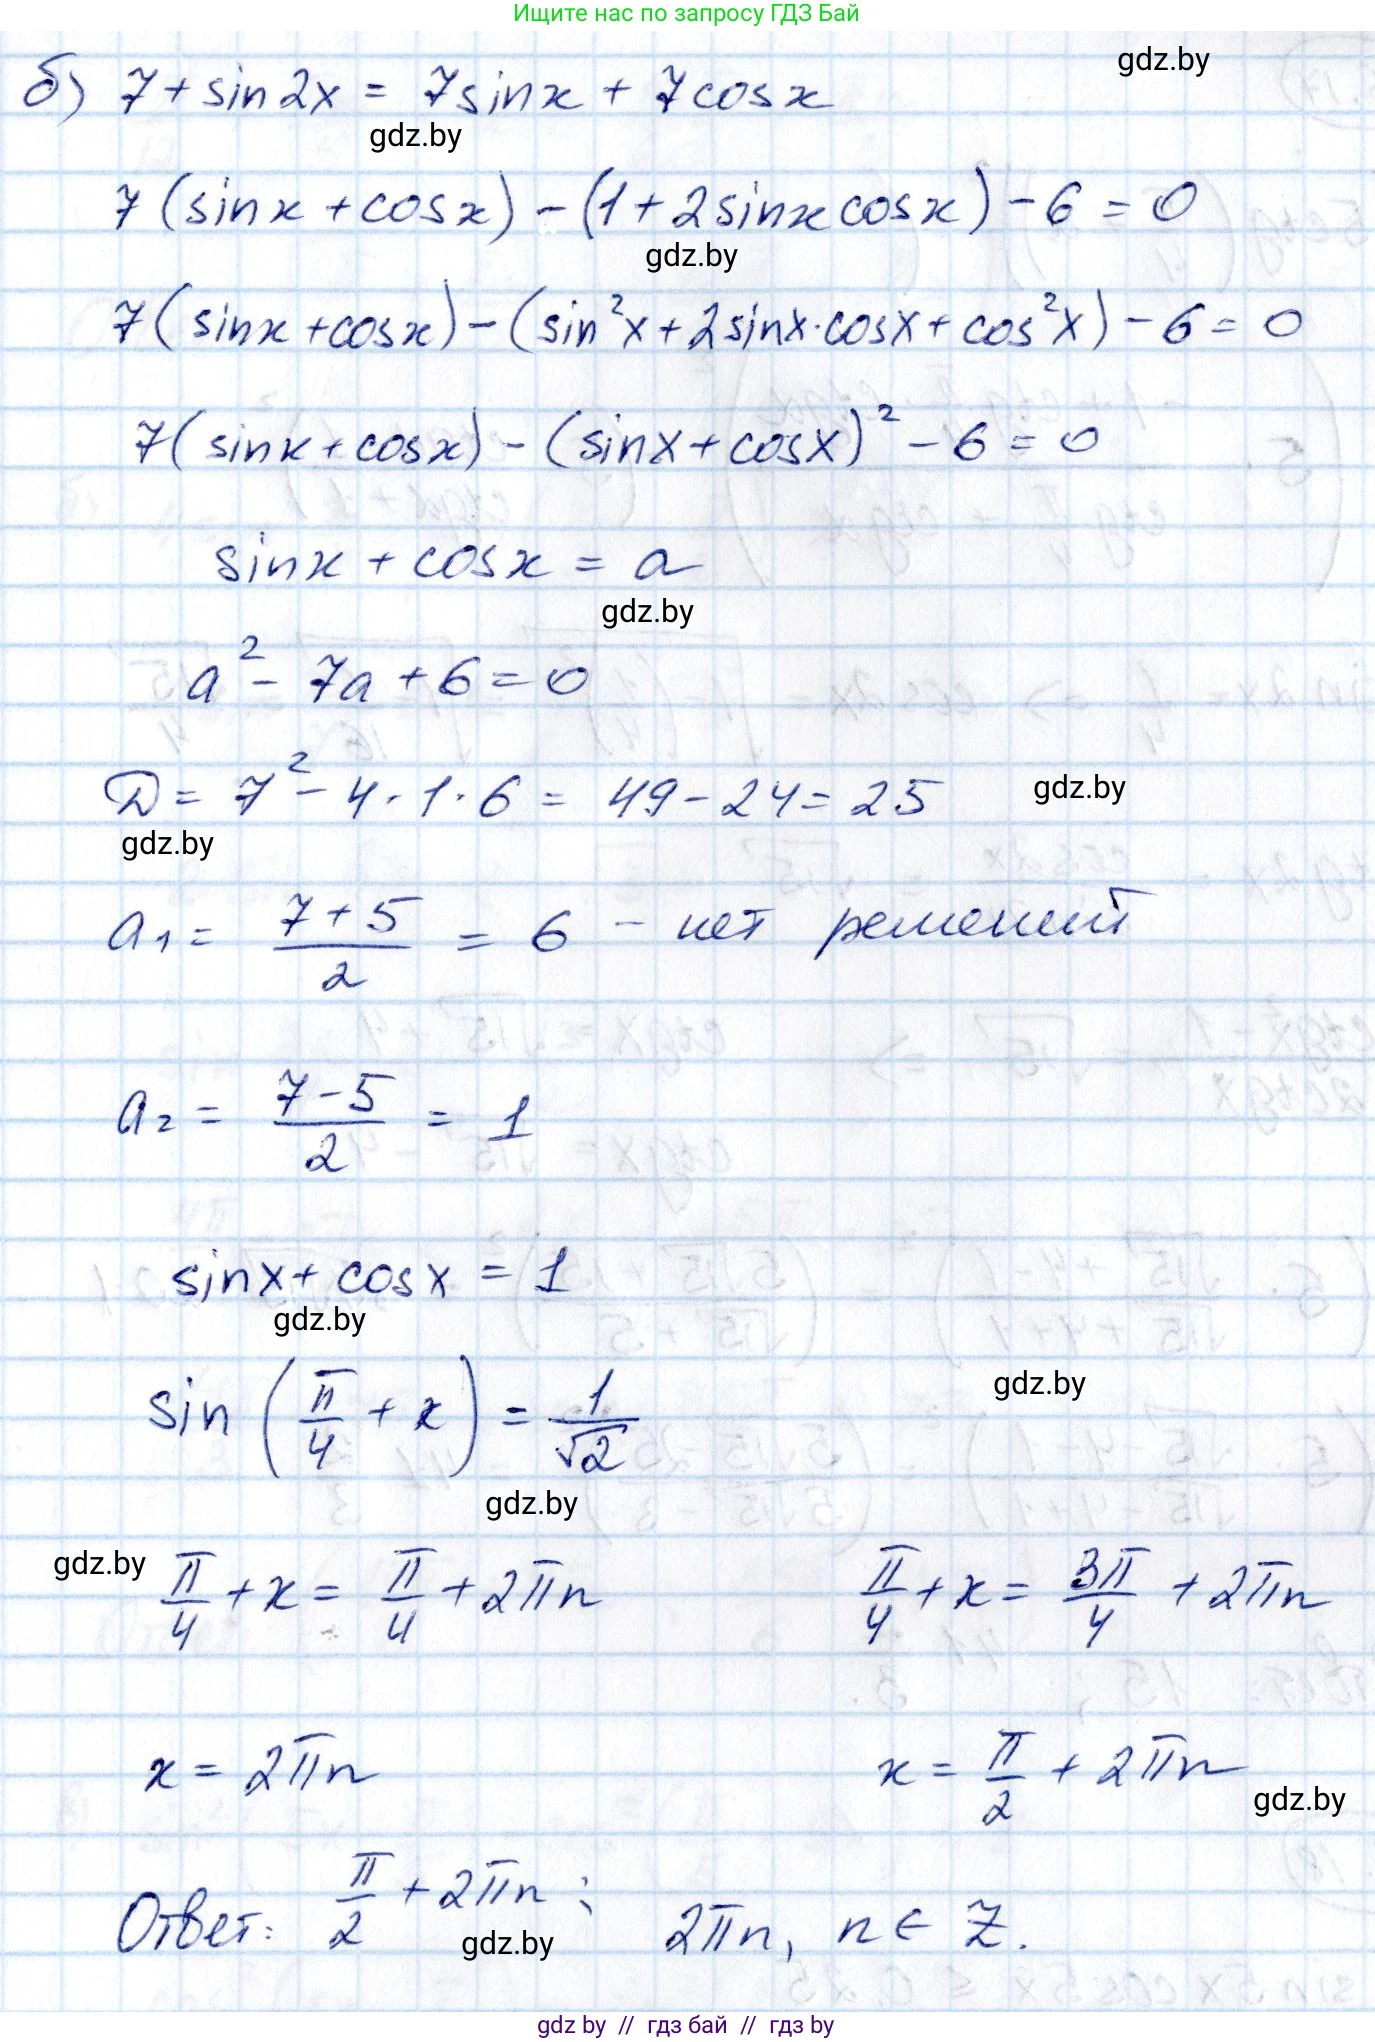 Ищите нас по запросу ГДЗ Бай
gdz.by
б) 7 + sin2x = 7sinx + 7cosx
gdz.by
7(sinx + cosx) - (1 + 2sinx cosx) - 6 = 0
gdz.by
7(sinx + cosx) - (sin²x + 2sinx·cosx + cos²x) - 6 = 0
7(sinx + cosx) - (sinx + cosx)² - 6 = 0
sinx + cosx = a
gdz.by
a² - 7a + 6 = 0
D = 7² - 4·1·6 = 49 - 24 = 25
gdz.by
gdz.by
a₁ = (7 + 5)/2 = 6 - нет решений
a₂ = (7 - 5)/2 = 1
sinx + cosx = 1
gdz.by
sin(π/4 + x) = 1/√2
gdz.by
gdz.by
gdz.by
π/4 + x = π/4 + 2πn π/4 + x = 3π/4 + 2πn
x = 2πn x = π/2 + 2πn
gdz.by
Ответ: π/2 + 2πn ; 2πn, n ∈ Z.
gdz.by
gdz by // гдз бай // гдз by